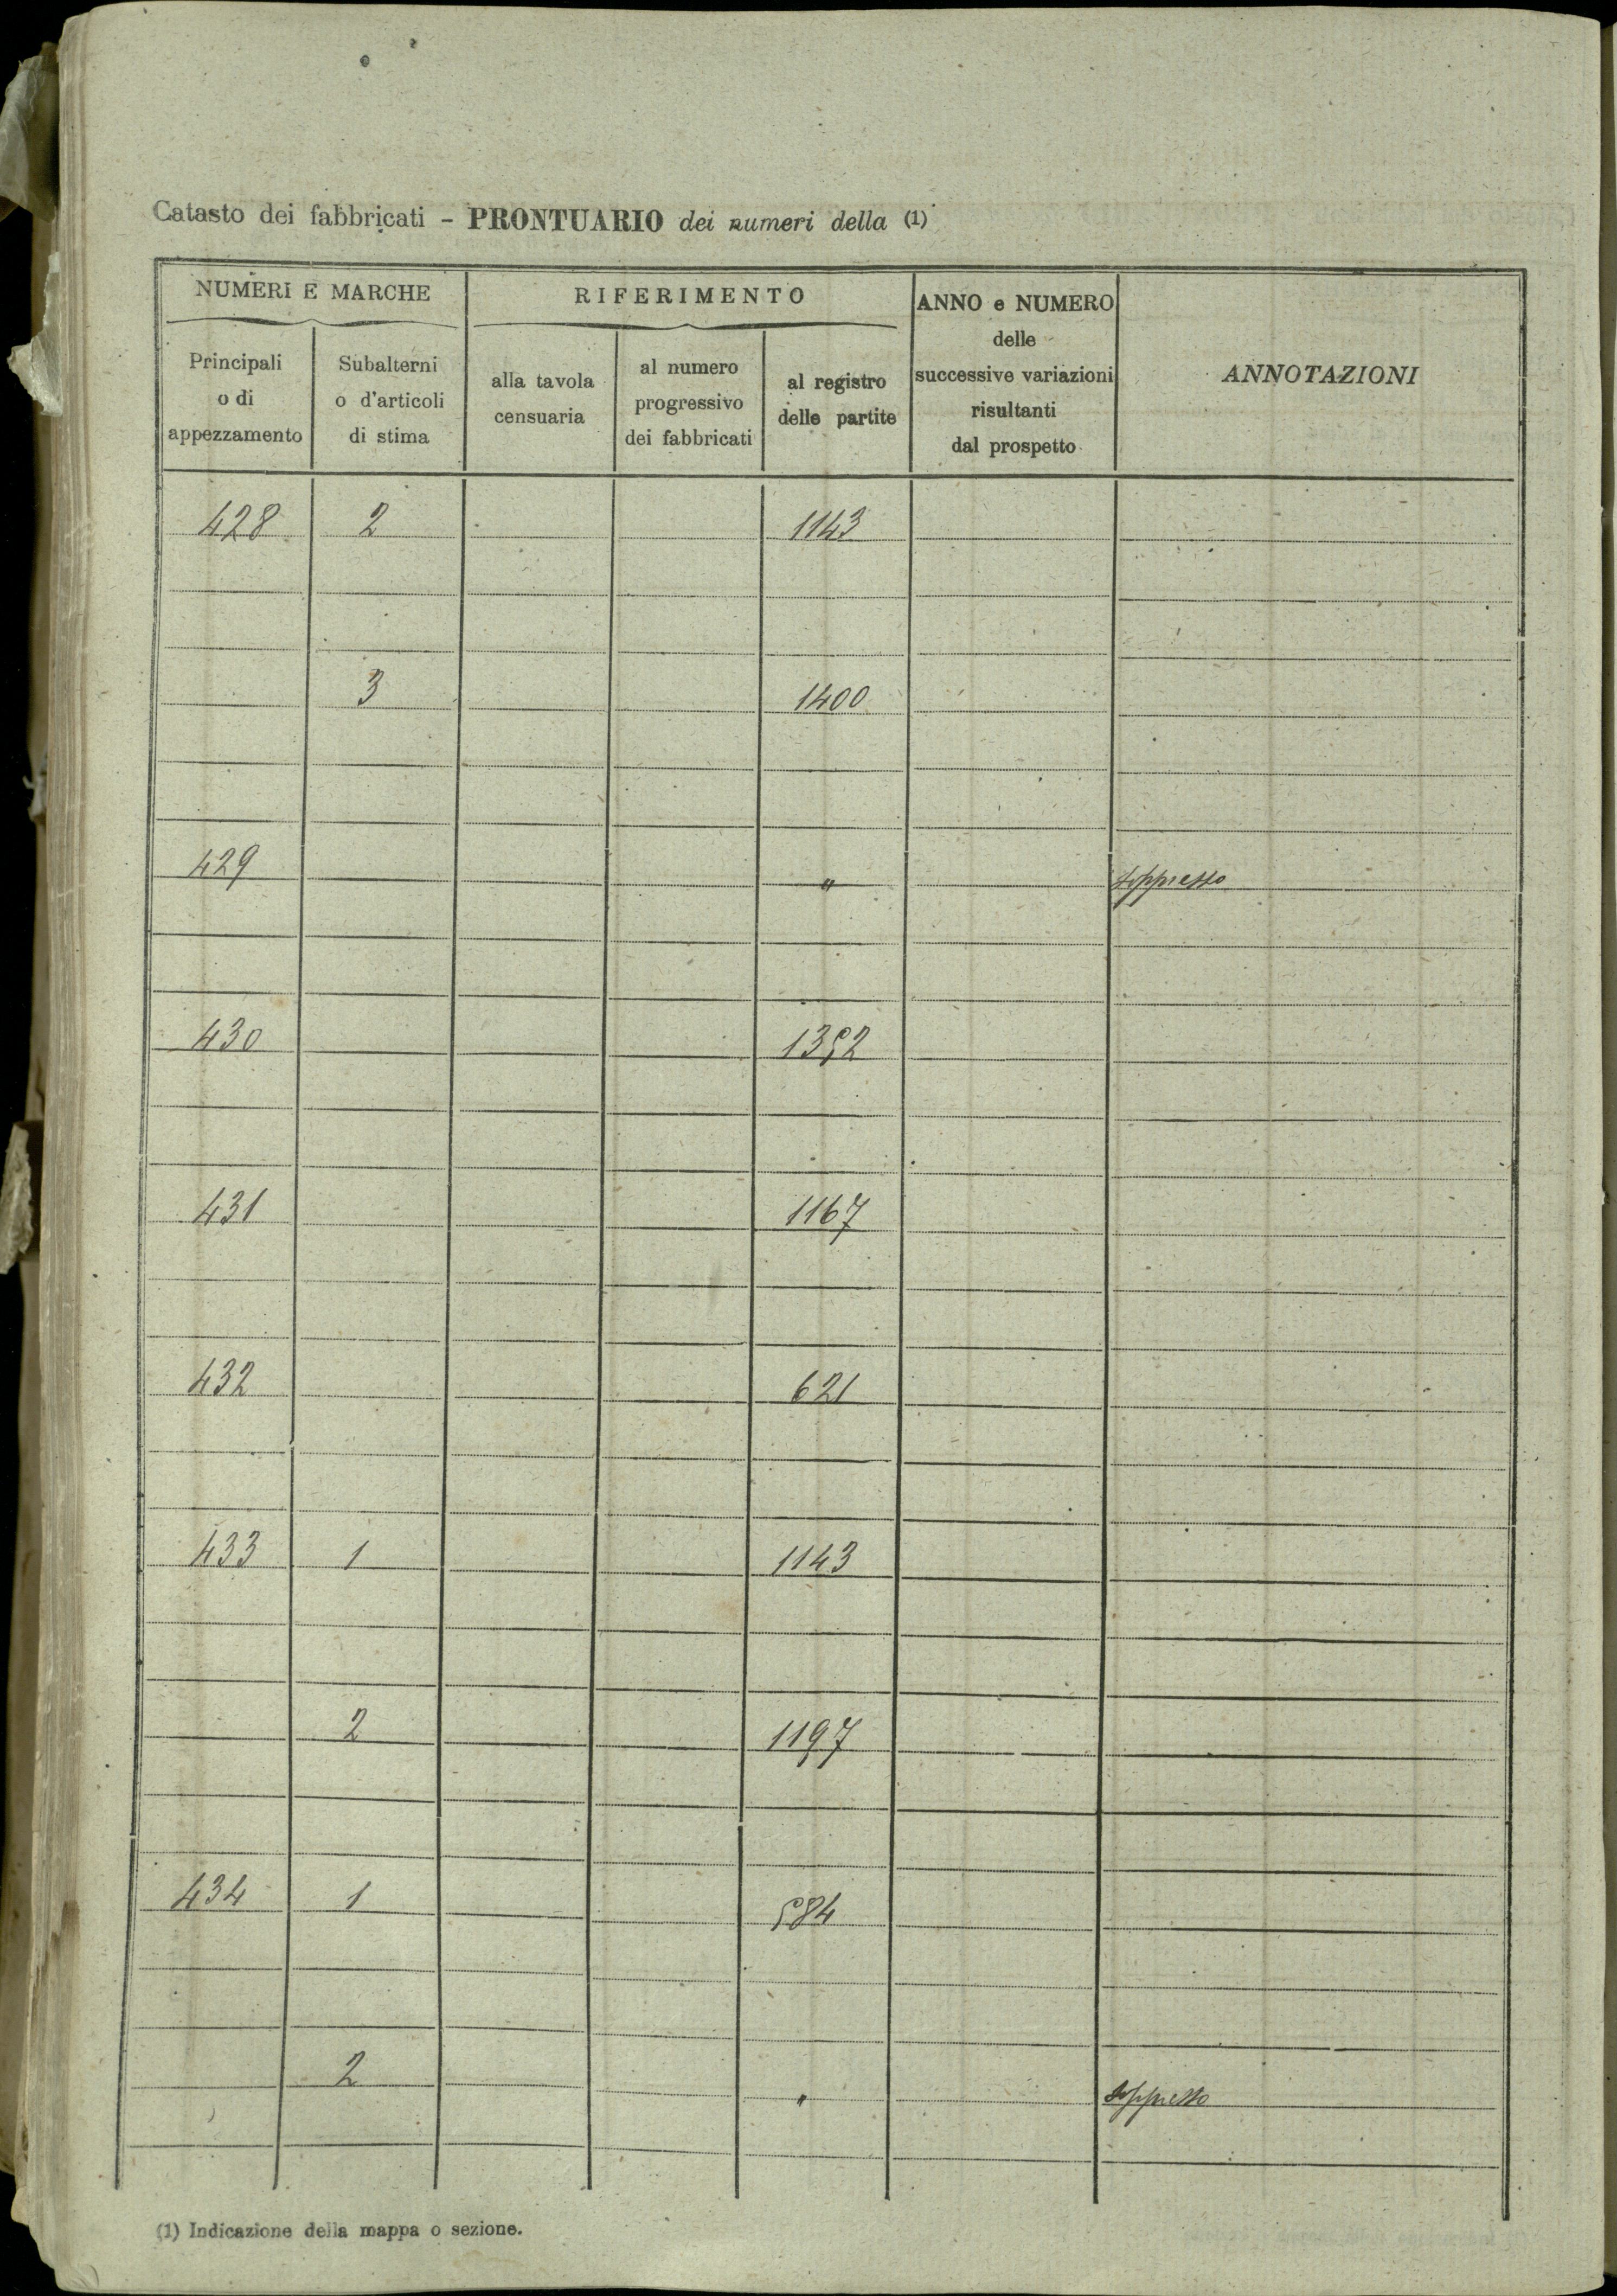 Catasto dei fabbricati - PRONTUARIO dei numeri della (1)
NUMERI E MARCHE
RIFERIMENTO
ANNO e NUMERO
delle
successive variazioni
risultanti
dal prospetto
ANNOTAZIONI
Principali
o di
appezzamento
Subalterni
o d'articoli
di stima
alla tavola
censuaria
al numero
progressivo
dei fabbricati
al registro
delle partite
428 2 1143
3 1400
429 " soppresso
430 1352
431 1167
432 621
433 1 1143
2 1197
434 1 584
2 " soppresso
(1) Indicazione della mappa o sezione.